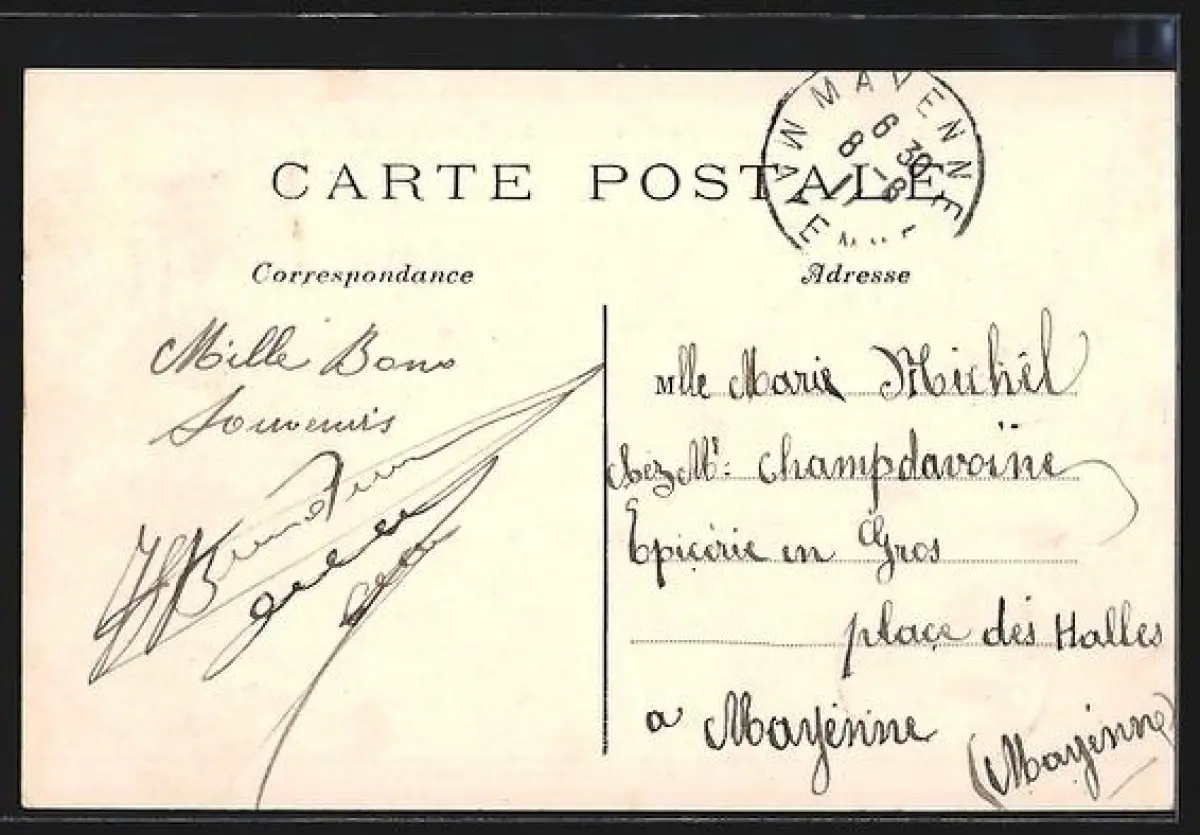 CARTE POSTALE
MAYENNE
6 30
8 -8
11
MAYENNE
Correspondance
Adresse
Mille Bons
Souvenirs
Mlle Marie Michel
chez Mr: Champdavoïne
Epicerie en Gros
place des Halles
a Mayenne
(Mayenne)